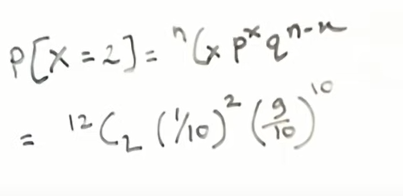 P[X = 2] = ⁿCₓ pˣ qⁿ⁻ˣ
= ¹²C₂ (1/10)² (9/10)¹⁰